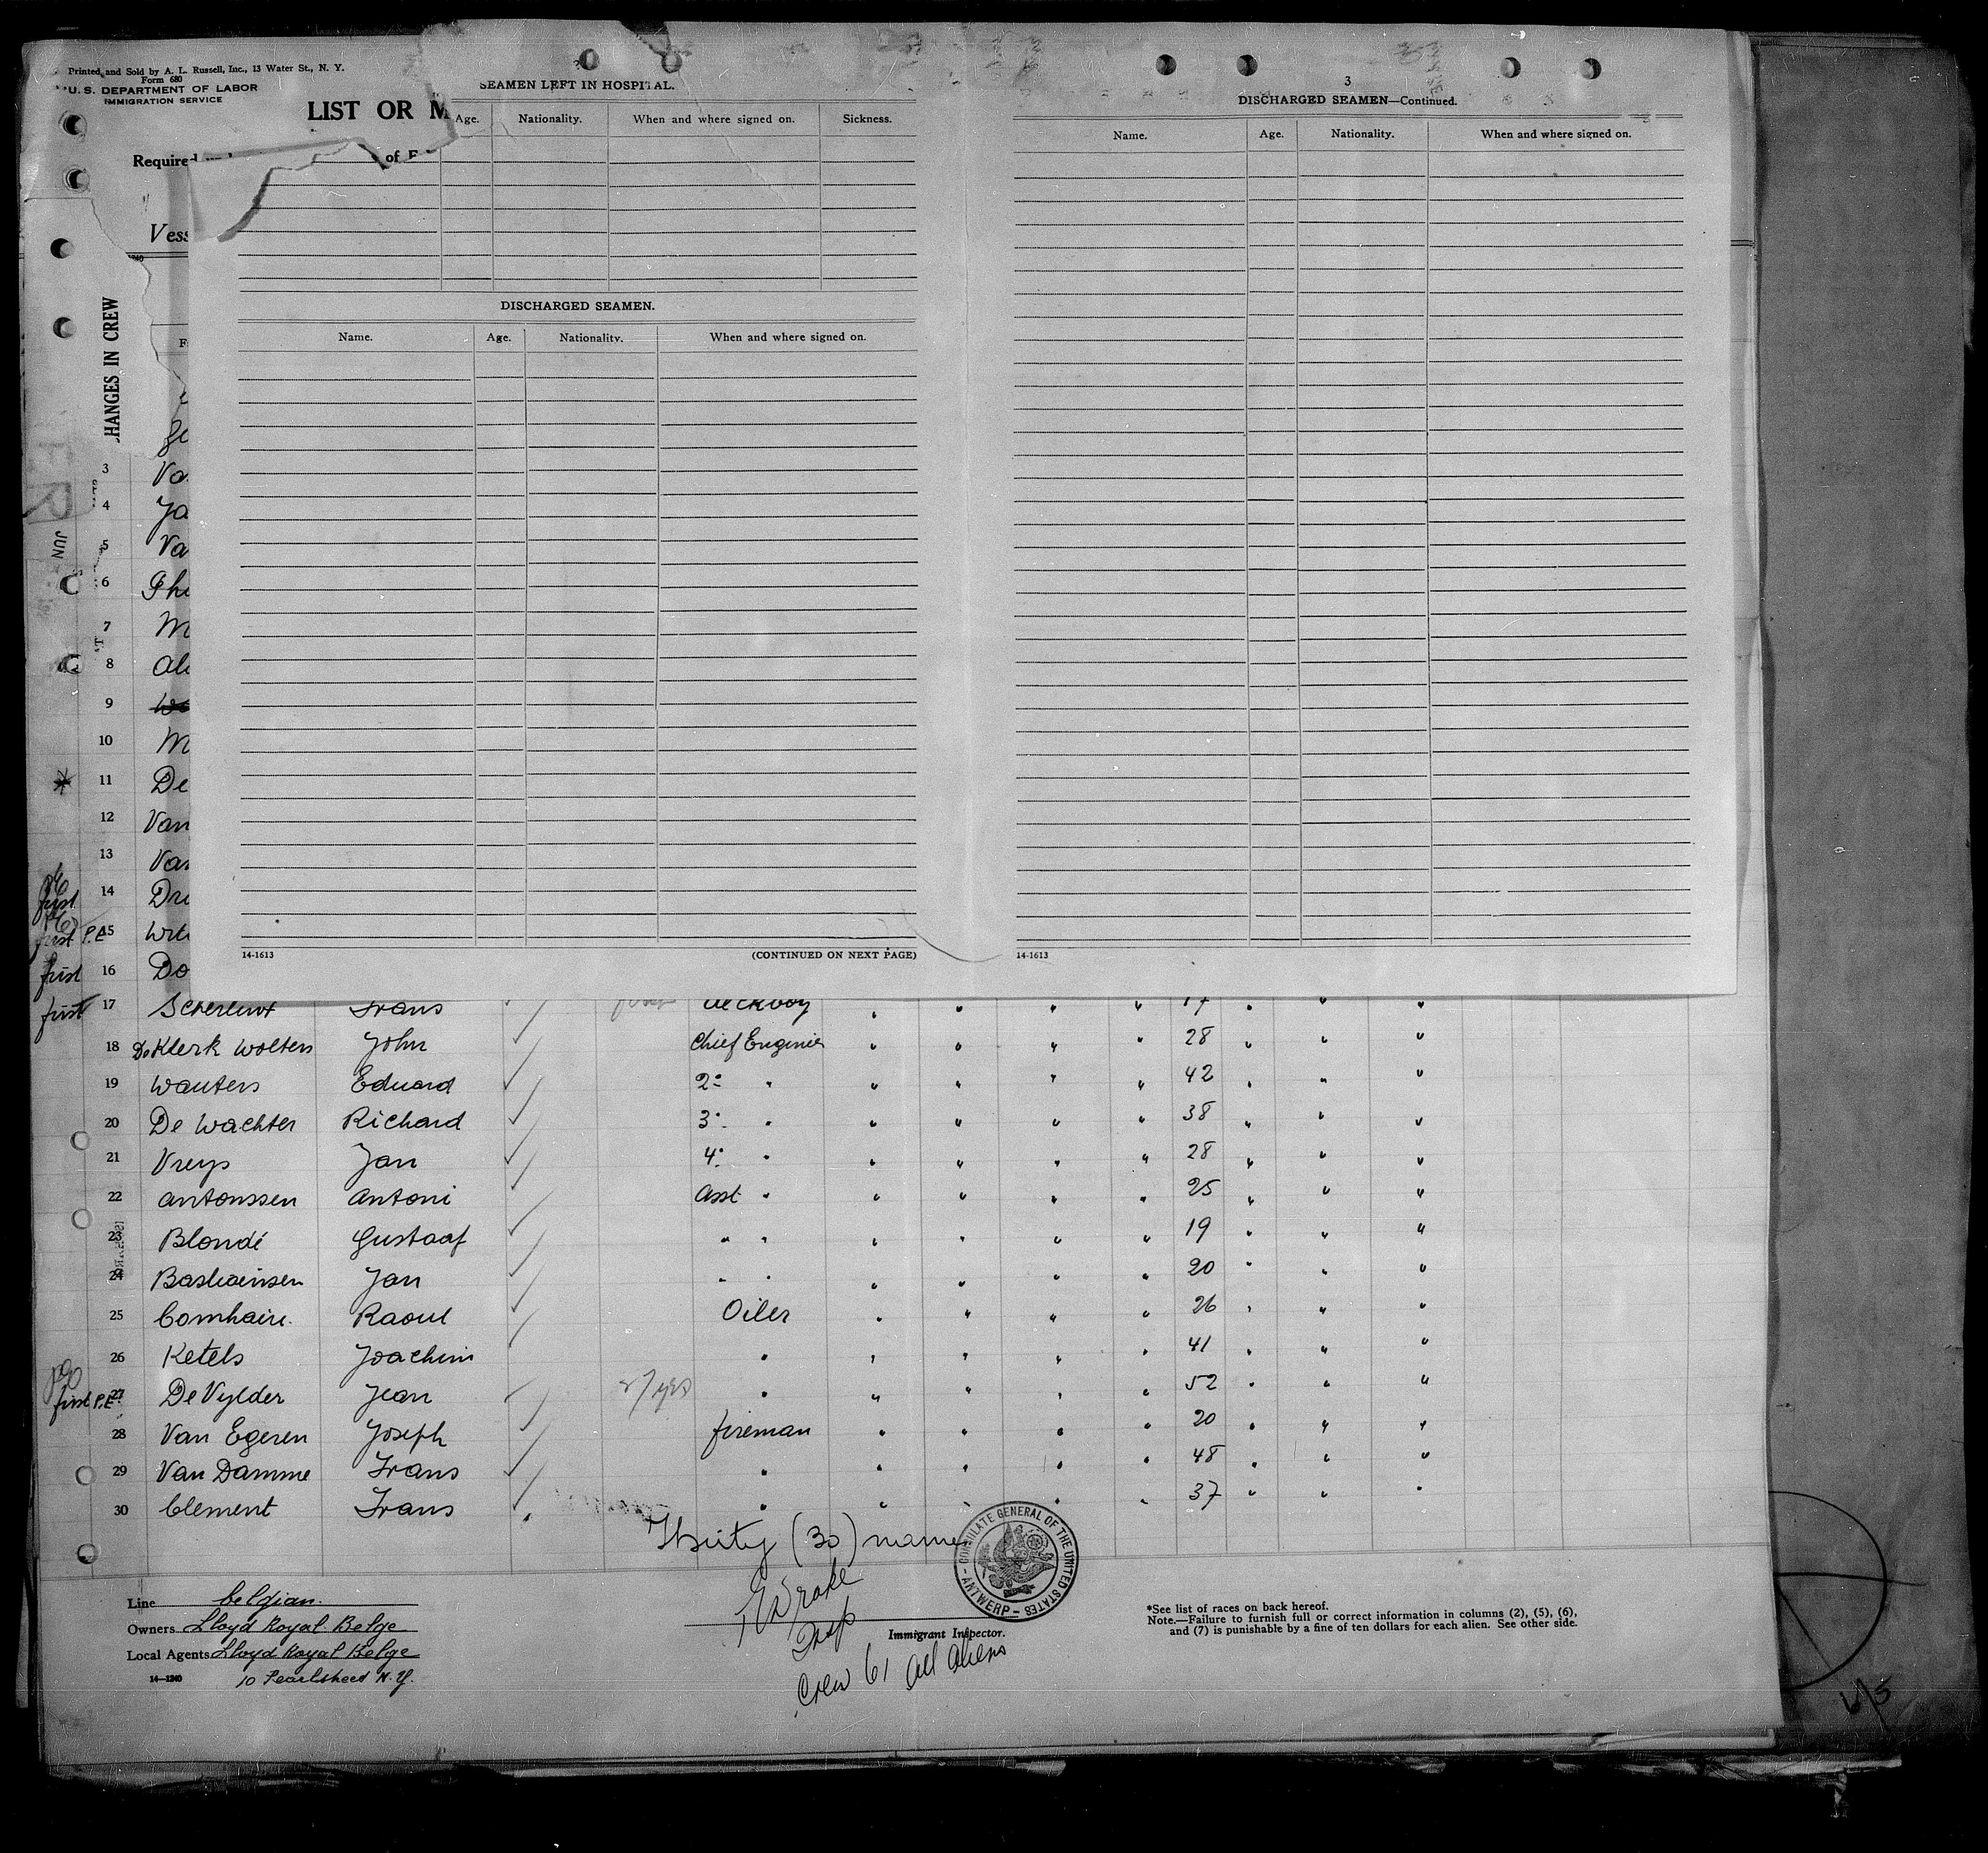 Printed and Sold by A. L. Russell, Inc., 13 Water St., N. Y.
Form 680
U. S. DEPARTMENT OF LABOR
IMMIGRATION SERVICE
LIST OR M
Required
of
Vess
HANGES IN CREW
JUN
SEAMEN LEFT IN HOSPITAL.
Age. Nationality. When and where signed on. Sickness.
DISCHARGED SEAMEN.
Name. Age. Nationality. When and where signed on.
14-1613 (CONTINUED ON NEXT PAGE)
3
DISCHARGED SEAMEN—Continued.
Name. Age. Nationality. When and where signed on.
14-1613
3 Va
4 Ja
5 Va
6 Phi
7 M
8 Al
9
10 M
11 De
12 Van
13 Van
first 14 Dri
first P.E 15
first 16 Do
first 17 Frans deckboy 17
18 De Klerk Wolters John Chief Enginier " " " " 28 " " "
19 Wauters Eduard 2: " " " " " 42 " " "
20 De Wachter Richard 3: " " " " " 38 " " "
21 Vreys Jan 4: " " " " " 28 " " "
22 Antonssen Antoni Asst " " " " " 25 " " "
23 Blondé Gustaaf " " " " " " 19 " " "
24 Bastiaensen Jan " " " " " " 20 " " "
25 Comhaire Raoul Oiler " " " " 26 " " "
26 Ketels Joachim " " " " " 41 " " "
first P.E. 27 De Vylder Jean 27 yrs " " " " " 52 " " "
28 Van Egeren Joseph fireman " " " " 20 " " "
29 Van Damme Frans " " " " " 48 " " "
30 Clement Frans " " " " " 37 " " "
Thirty (30) names
Drake
Insp
Immigrant Inspector.
Crew 61 all aliens
CONSULATE GENERAL OF THE UNITED STATES - ANTWERP -
Line belgian.
Owners Lloyd Royal Belge
Local Agents Lloyd Royal Belge
14—1240 10 Pearlstreet N.Y.
*See list of races on back hereof.
Note.—Failure to furnish full or correct information in columns (2), (5), (6),
and (7) is punishable by a fine of ten dollars for each alien. See other side.